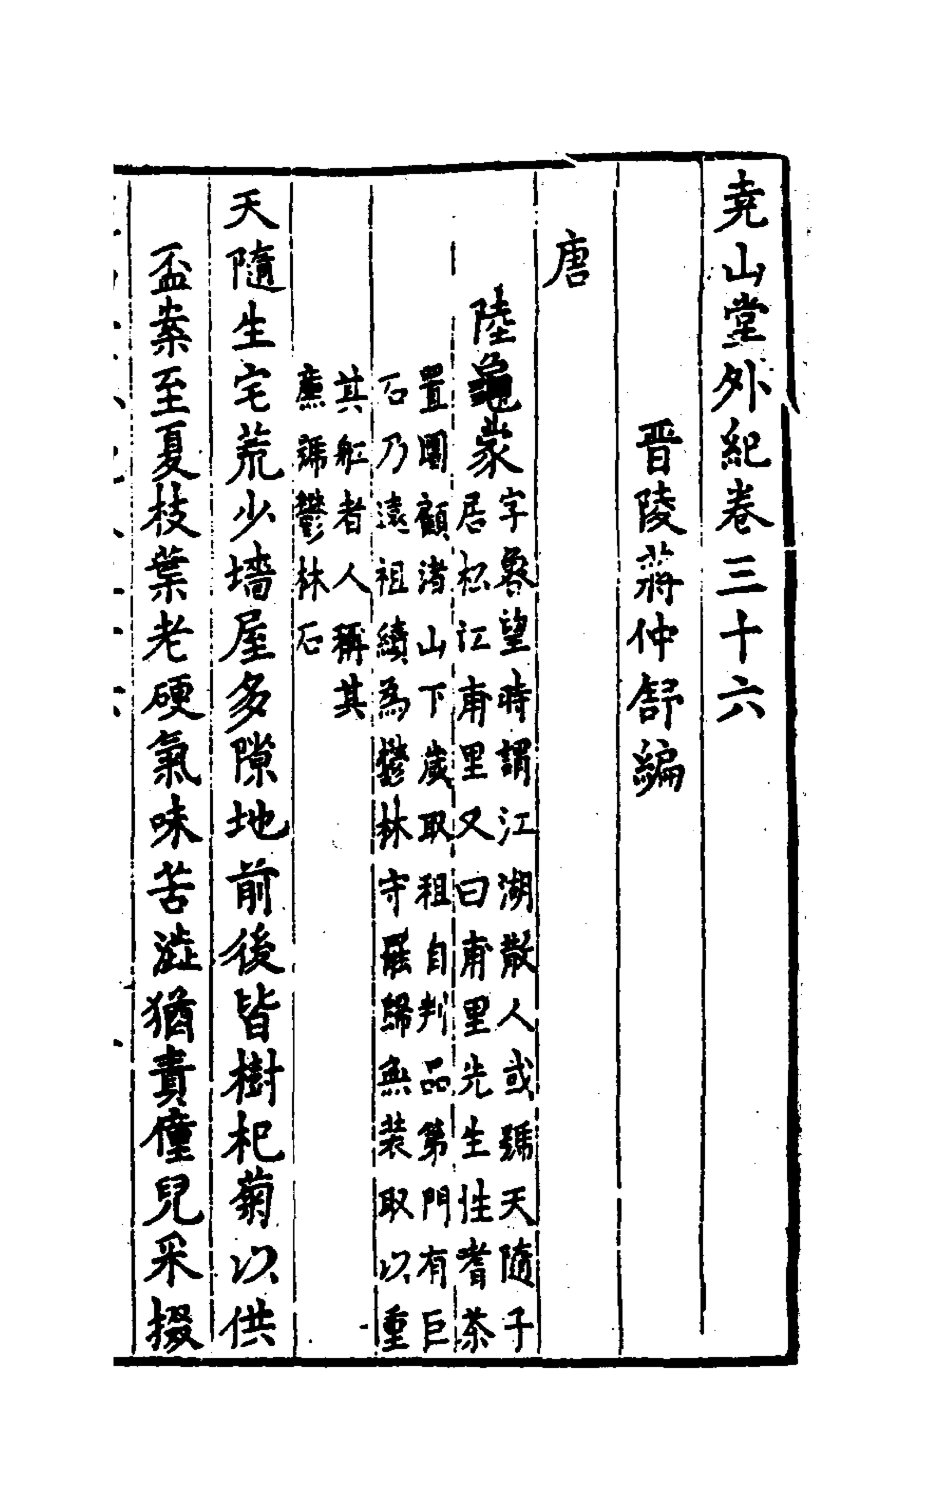 堯山堂外紀卷三十六
晋陵蔣仲舒編
唐
陸龜蒙
字魯望時謂江湖散人或號天隨子
居松江甫里又曰甫里先生性耆茶
置園顧渚山下歲取租自判品第門有巨
石乃遠祖績為鬱林守罷歸無裝取以重
其舡者人稱其
廉號鬱林石
天隨生宅荒少墻屋多隙地前後皆樹杞菊以供
盃案至夏枝葉老硬氣味苦澁猶責僮兒采掇